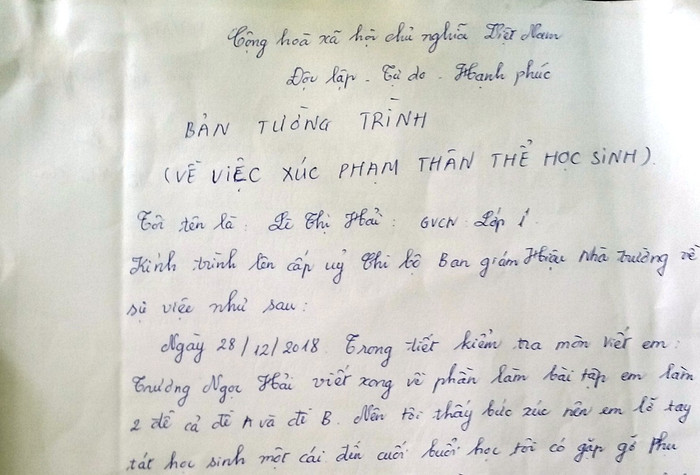 Cộng hoà xã hội chủ nghĩa Việt Nam
Độc lập - Tự do - Hạnh phúc
BẢN TƯỜNG TRÌNH
(VỀ VIỆC XÚC PHẠM THÂN THỂ HỌC SINH).
Tôi tên là: Lê Thị Hải: GVCN Lớp 1.
Kính trình lên cấp uỷ Chi bộ Ban giám Hiệu nhà trường về
sự việc như sau:
Ngày 28/12/2018. Trong tiết kiểm tra môn viết em:
Trương Ngọc Hải viết xong về phần làm bài tập em làm
2 đề cả đề A và đề B. Nên tôi thấy bức xúc nên em lỡ tay
tát học sinh một cái đến cuối buổi học tôi có gặp gỡ Phụ